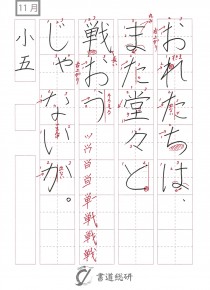 11月
おれたちは、
また堂々と
戦おう
じゃないか。
小五
書道総研